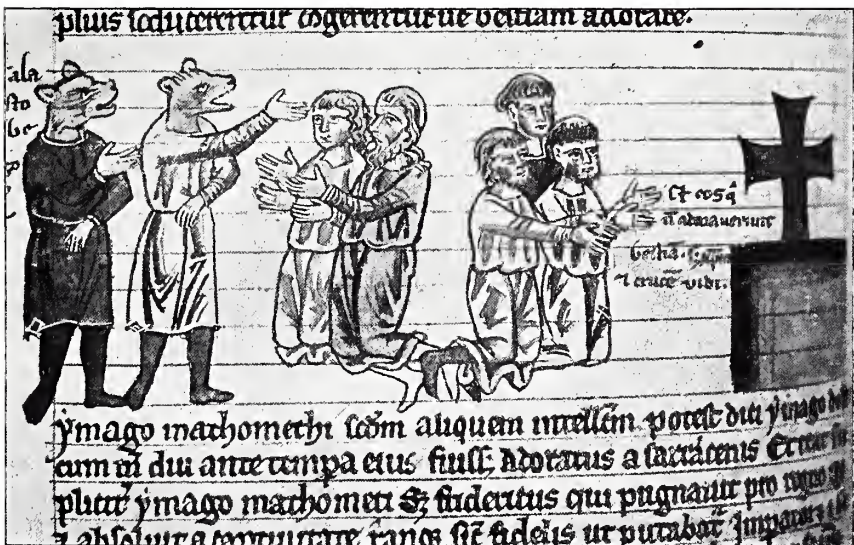 plius seducerentur cogerenturue bestiam adorare.
ala
sto
be
Et eos q̄
n̄ adorauerunt
bestiā.
⁊ crucē vidi.
ymago mathomethi scdm̄ aliquem intellēm potest dici ymago
cum tn̄ diu ante tempa eius fuiss; Adoratus a sarracenis
ymago mathometi Sꝫ fridericus qui pugnauit pro regno
⁊ absoluit a captiuitate sic̄ fidelis ut putabat̄ Impator